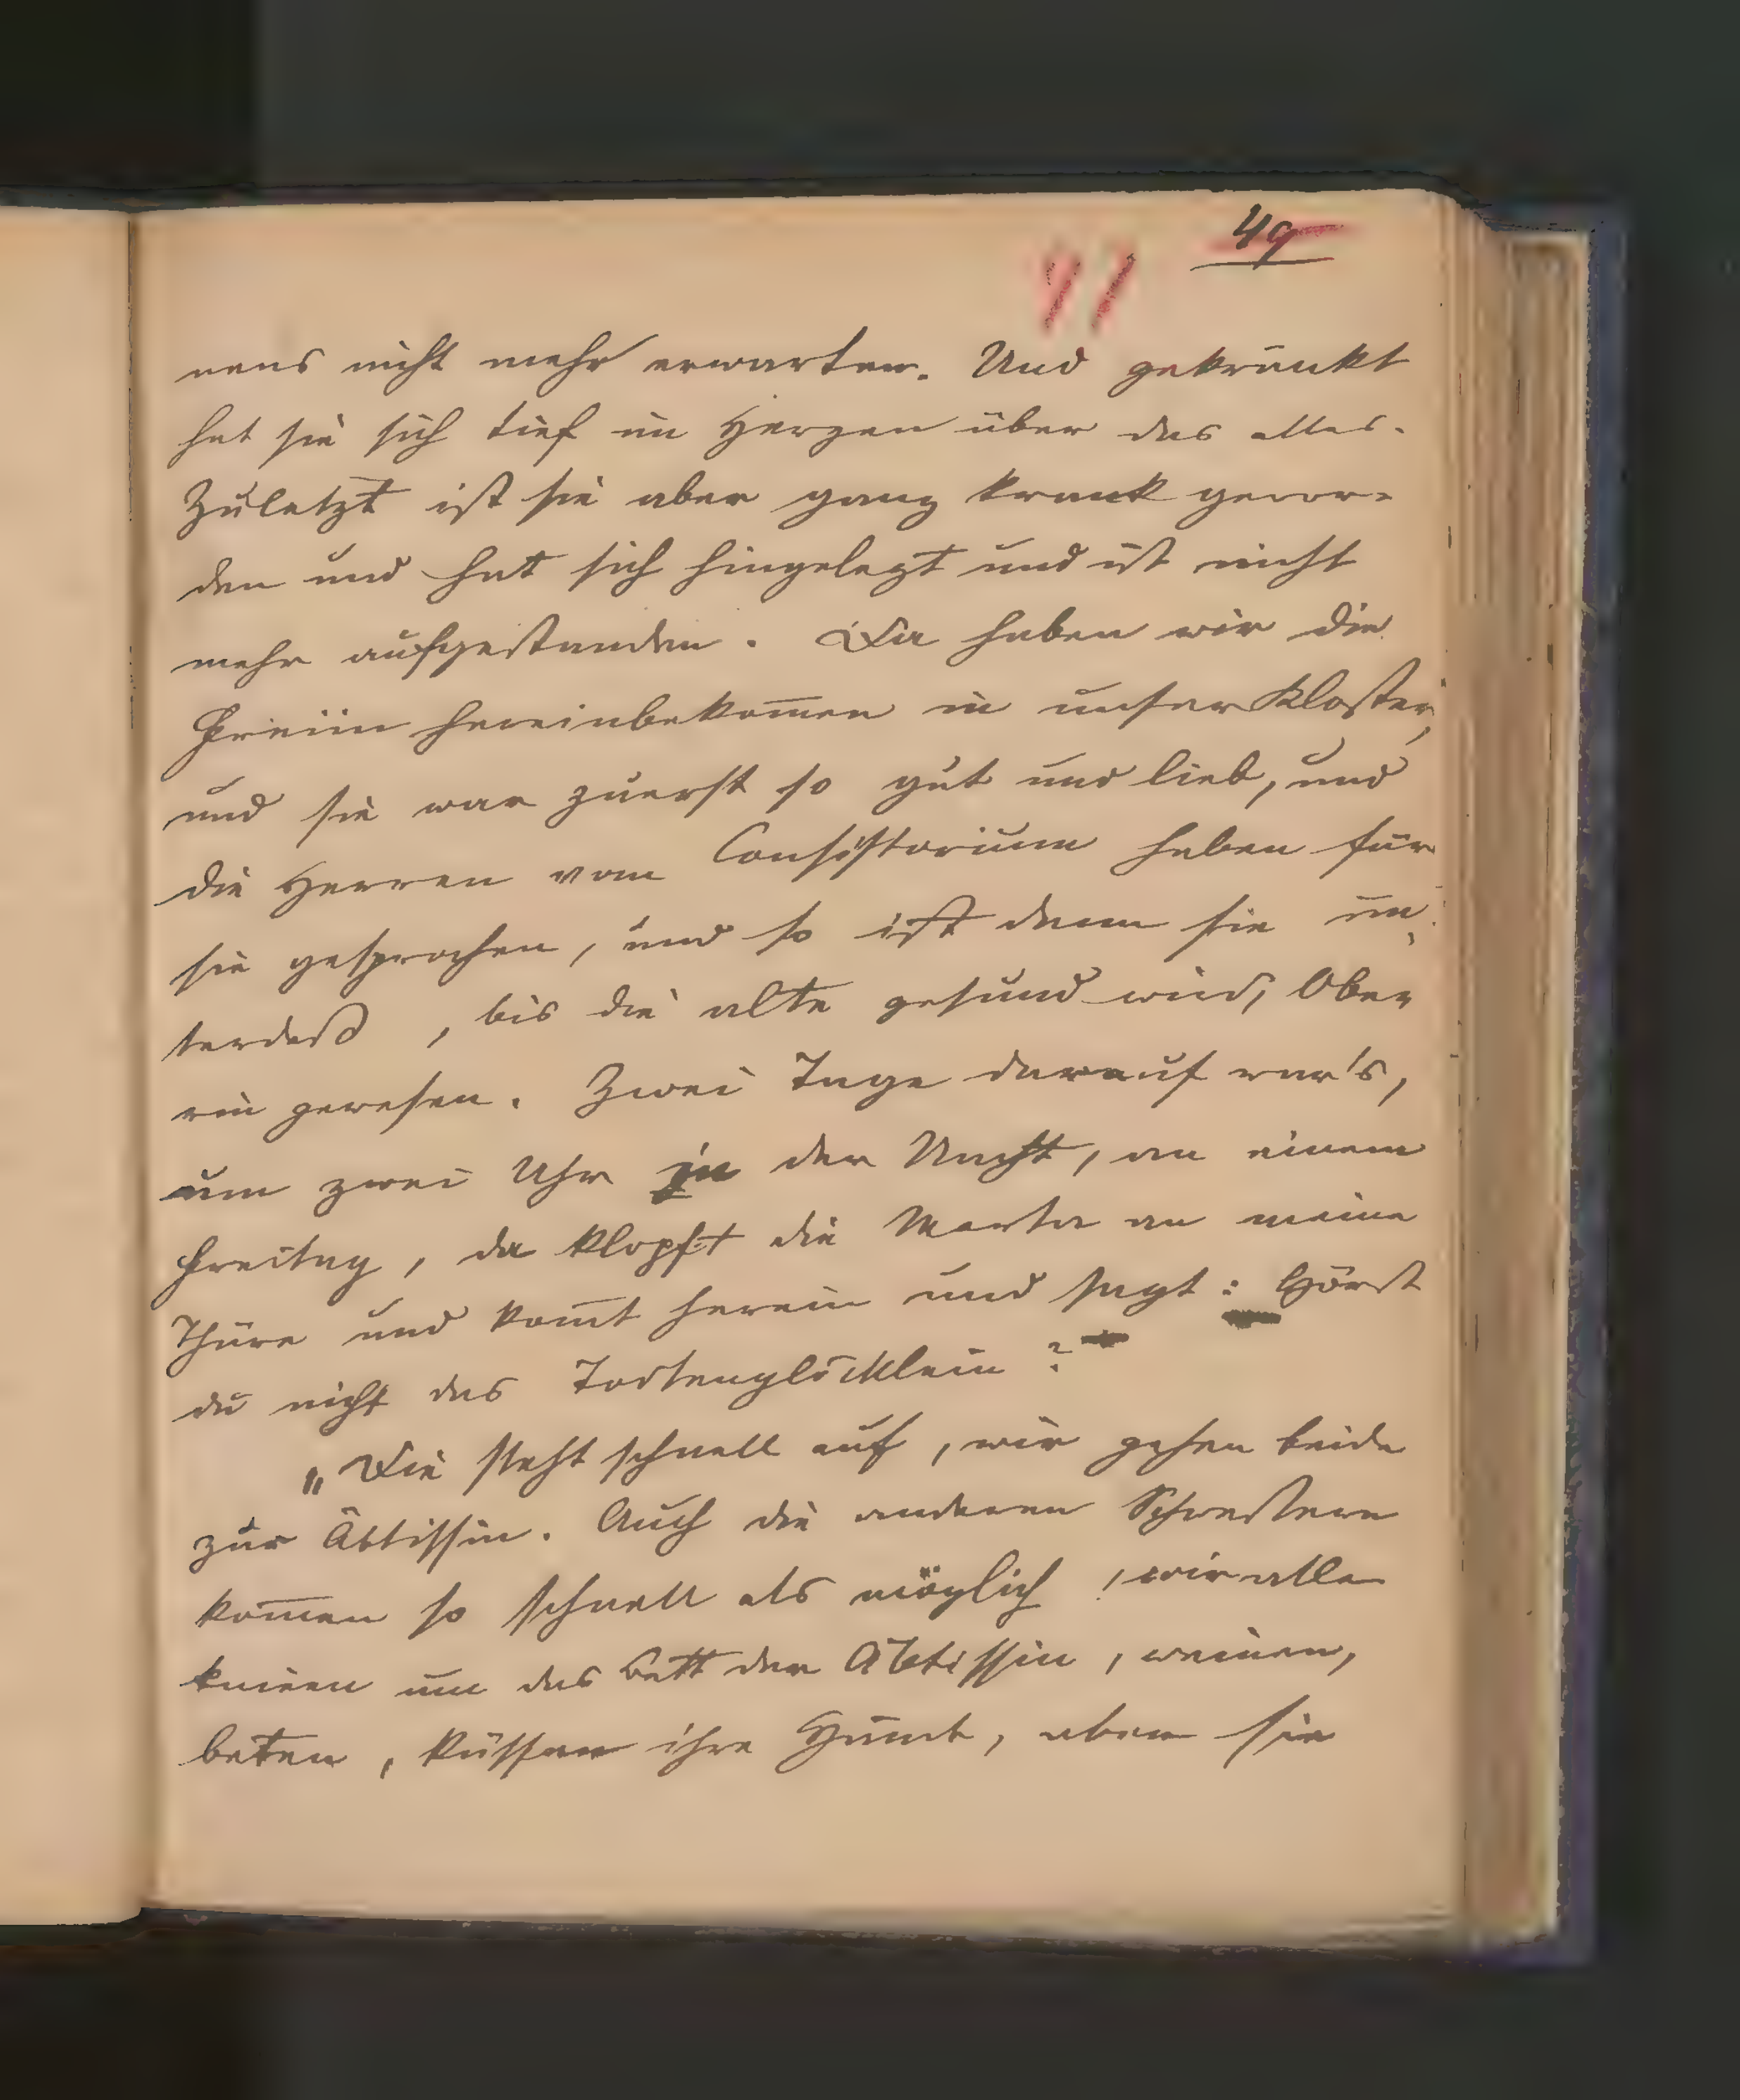 49
41
nens nicht mehr erwarten. Und gekränkt
hat sie sich tief im Herzen über das alles.
Zuletzt ist sie aber ganz krank gewor-
den und hat sich hingelegt und ist nicht
mehr aufgestanden. Da haben wir die
hereinbekom̄en in unser Kloster,
und sie war zuerst so gut und lieb, und
die Herren vom Consistorium haben für
sie gesprochen, und so ist denn sie un-
terdeß, bis die alte gesund wird, Obe
rin gewesen. Zwei Tage darauf war's,
um zwei Uhr in der Nacht, an einem
Freitag, da klopft die Marta an meine
Thüre und kom̄t herein und sagt: Hörst
du nicht das Todtenglöcklein?
„Die steht schnell auf, wir gehen beide
zur Äbtissin. Auch die anderen Schwestern
kom̄en so schnell als möglich, wir alle
knieen um das Bett der Äbtissin, weinen,
beten, küssen ihre Hände, aber sie